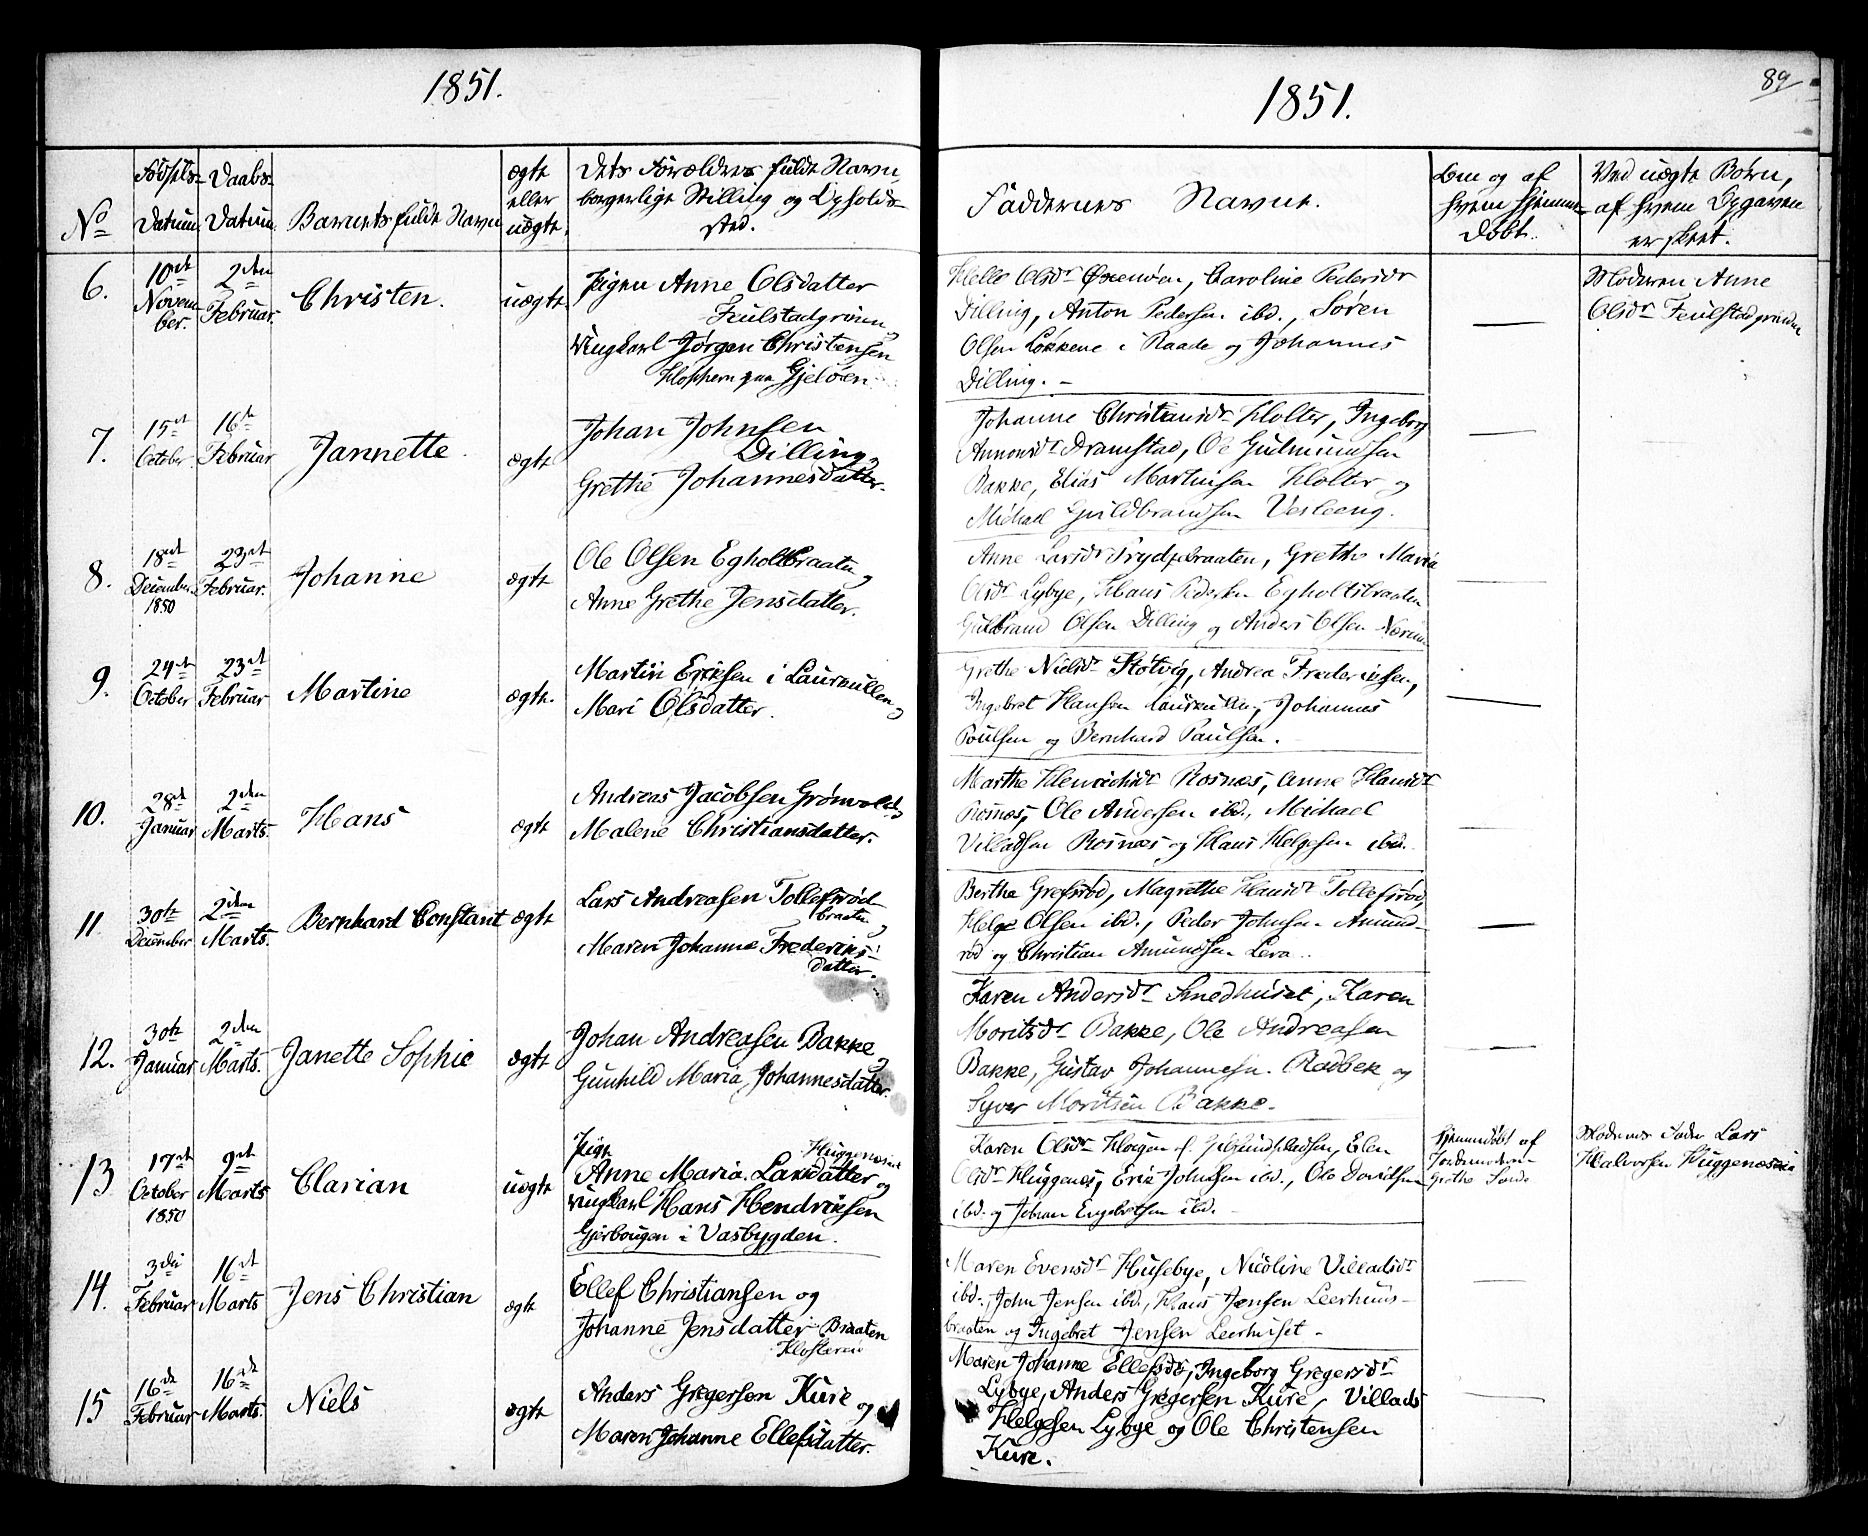 1851.
No
Fødsels-
Datum.
Daabs-
Datum.
Barnets fulde Navn
ægte
eller
uægte.
Dets Forældres fulde Navn,
borgerlige Stilling og Opholds-
sted.
6.
10de
Novem-
ber.
2den
Februar.
Christen.
uægte.
Pigen Anne Olsdatter
og
Ungkarl Jørgen Christensen
paa Gjeløen
7.
15de
October
16de
Februar
Jannette
ægte
Johan Johnsen
Dilling og
Grethe Johannesdatter.
8.
18de
December
1850
23de
Februar.
Johanne
ægte
Ole Olsen Egholtbraaten og
Anne Grethe Jensdatter.
9.
24de
October
23de
Februar
Martine
ægte.
Martin Eriksen i Laurkullen og
Mari Olsdatter.
10.
28de
Januar
2den
Marts.
Hans
ægte
Andreas Jacobsen Grønvold og
Malene Christiansdatter.
11.
30te
December
2den
Marts.
Bernhard Constant
ægte
Lars Andreasen Tollefsrød
braaten og
Maren Johanne Frederiks-
datter.
12.
30te
Januar
2den
Marts.
Janette Sophie
ægte
Johan Andreasen Bakke og
Gunhild Maria Johannesdatter.
13
17de
October
1850
9de
Marts
Clarian
uægte
Pige Huggenæs
Anne Maria Larsdatter og
Ungkarl Hans Hendriksen
Gjerbougen i Vasbygden.
14.
3die
Februar
16de
Marts
Jens Christian
ægte
Ellef Christiansen og
Johanne Jensdatter Braaten
Klosteren
15
16de
Februar
16de
Marts.
Niels
ægte
Anders Gregersen Kure og
Maren Johanne Ellefsdatter.
1851.
89
Faddernes Navne.
Om og af
hvem hjemme-
døbt.
Ved uægte Børn,
af hvem Opgaven
er skeet.
Helle Olsdr , Caroline Pedersdr
Dilling, Anton Pedersen ibd., Søren
Olsen Løkkene i Raade og Johannes
Dilling. –
Moderen Anne
Olsdr
Johanne Christiansdr Holter, Ingeborg
Dramstad, Ole Gulmundsen
Bakke, Elias Martinsen Holter og
Michael Guldbrandsen Vesleeng.
Anne Larsdr , Grethe Maria
Olsdr Lybye, Hans Pedersen Egholtbraaten
Guldbrand Olsen Dilling og Anders Olsen
Grethe Nielsdr Støtvig, Andrea Frederiksen,
Ingebret Hansen Laurkullen, Johannes
Poulsen og Bernhard Paulsen.
Marthe Rosnæs, Anne Hansdr
Rosnæs, Ole Andersen ibd., Michael
Villadsen Rosnæs og Hans Helgesen ibd.
Berthe Grefsrød, Magrethe Hansdr Tollefsrød,
Helge Olsen ibd., Peder Johnsen Amund-
rød og Christian Amundsen Lera.
Karen Andersdr Smedhuset, Karen
Moritsdr Bakke, Ole Andreasen
Bakke, Gustav Johannesen Rødbek og
Syver Moritsen Bakke.
Karen Olsdr , Elen
Olsdr Huggenæs, Eric Johnsen ibd., Ole Davidsen
ibd. og Johan Engebretsen ibd.
Hjemmedøbt af
Jordemoderen
Grethe
Moderens Fader Lars
Halvorsen
Maren Evensdr Husebye, Nicoline Villadsdr
ibd., John Jensen ibd., Hans Jensen Leerhuus-
braaten og Ingebret Jensen Leerhuset –
Maren Johanne Ellefsdr, Ingeborg Gregersdr
Lybye, Anders Gregersen Kure, Villads
Helgesen Lybye og Ole Christensen
Kure.